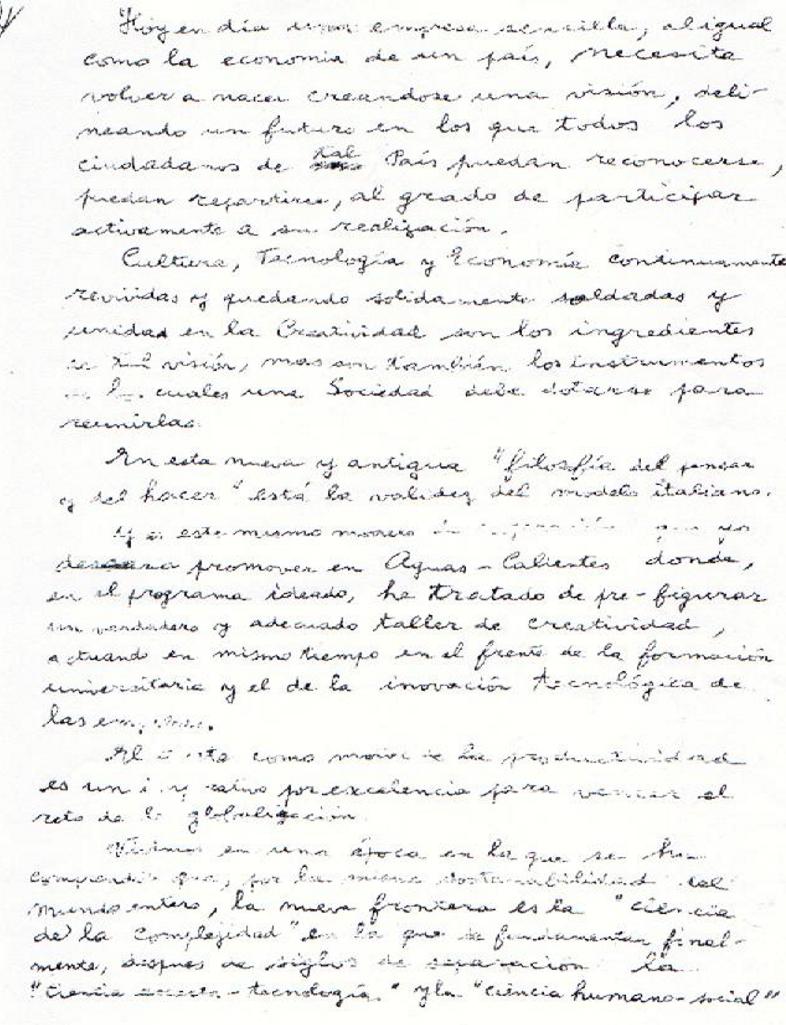 Hoy en día una empresa sencilla, al igual
como la economia de un país, necesita
volver a nacer creandose una visión, deli-
neando un futuro en los que todos los
ciudadanos de tal País puedan reconocerse,
puedan repartirse, al grado de participar
activamente a su realización.
Cultura, Tecnología y Economía continuamente
revividas y quedando solidamente soldadas y
unidas en la Creatividad son los ingredientes
de tal visión, mas son también los instrumentos
de los cuales una Sociedad debe dotarse para
reunirlas.
En esta nueva y antigua "filosfía del pensar
y del hacer" está la validez del modelo italiano.
Y es este mismo modelo de que yo
promover en Aguas-Calientes donde,
en el programa ideado, he tratado de pre-figurar
un verdadero y adecuado taller de creatividad,
actuando en mismo tiempo en el frente de la formación
universitaria y el de la inovación tecnológica de
las
El como motor de la productividad
es un por excelencia para vencer el
reto de la globalización
Vivimos en una época en la que se ha
que, por la misma del
mundo entero, la nueva frontera es la "ciencia
de la complejidad" en la que se fundamentan final-
mente, despues de siglos de separación la
"ciencia - tecnología" y la "ciencia humano-social"